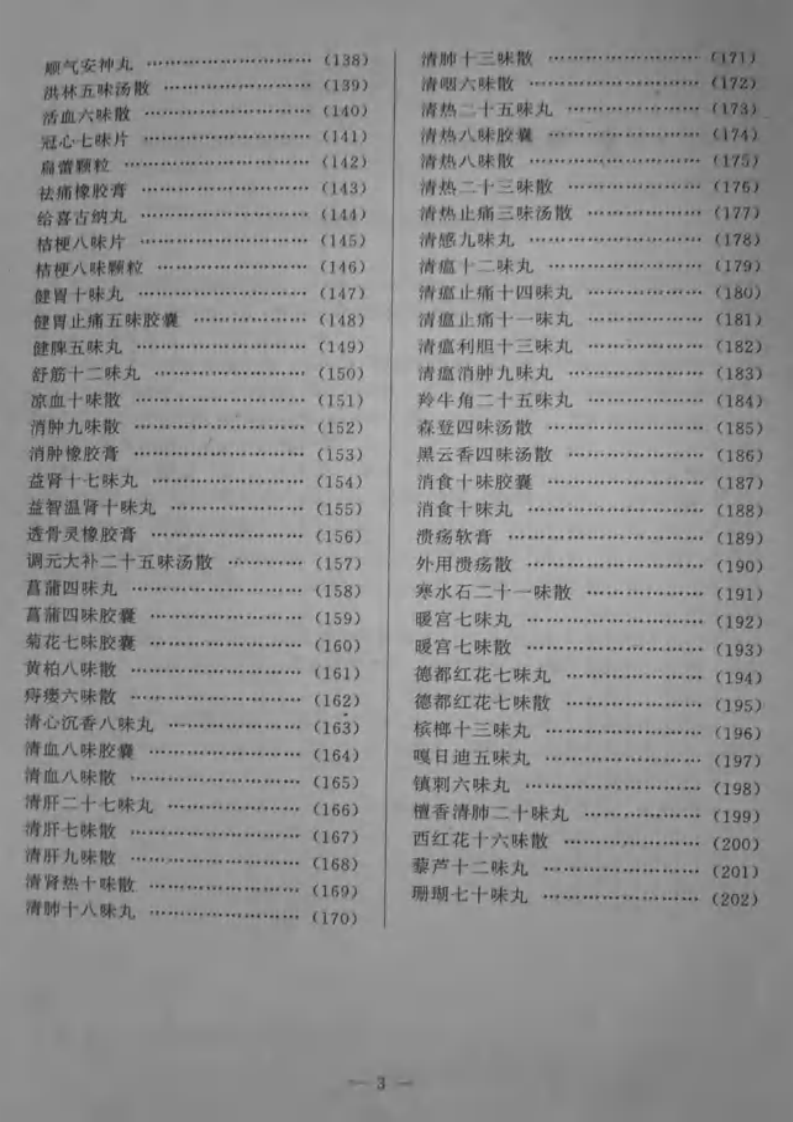 顺气安神丸 ………………………… (138)
洪林五味汤散 ……………………… (139)
活血六味散 ………………………… (140)
冠心七味片 ………………………… (141)
扁蕾颗粒 …………………………… (142)
祛痛橡胶膏 ………………………… (143)
给喜古纳丸 ………………………… (144)
桔梗八味片 ………………………… (145)
桔梗八味颗粒 ……………………… (146)
健胃十味丸 ………………………… (147)
健胃止痛五味胶囊 ………………… (148)
健脾五味丸 ………………………… (149)
舒筋十二味丸 ……………………… (150)
凉血十味散 ………………………… (151)
消肿九味散 ………………………… (152)
消肿橡胶膏 ………………………… (153)
益肾十七味丸 ……………………… (154)
益智温肾十味丸 …………………… (155)
透骨灵橡胶膏 ……………………… (156)
调元大补二十五味汤散 …………… (157)
菖蒲四味丸 ………………………… (158)
菖蒲四味胶囊 ……………………… (159)
菊花七味胶囊 ……………………… (160)
黄柏八味散 ………………………… (161)
痔瘘六味散 ………………………… (162)
清心沉香八味丸 …………………… (163)
清血八味胶囊 ……………………… (164)
清血八味散 ………………………… (165)
清肝二十七味丸 …………………… (166)
清肝七味散 ………………………… (167)
清肝九味散 ………………………… (168)
清肾热十味散 ……………………… (169)
清肺十八味丸 ……………………… (170)
清肺十三味散 ……………………… (171)
清咽六味散 ………………………… (172)
清热二十五味丸 …………………… (173)
清热八味胶囊 ……………………… (174)
清热八味散 ………………………… (175)
清热二十三味散 …………………… (176)
清热止痛三味汤散 ………………… (177)
清感九味丸 ………………………… (178)
清瘟十二味丸 ……………………… (179)
清瘟止痛十四味丸 ………………… (180)
清瘟止痛十一味丸 ………………… (181)
清瘟利胆十三味丸 ………………… (182)
清瘟消肿九味丸 …………………… (183)
羚牛角二十五味丸 ………………… (184)
森登四味汤散 ……………………… (185)
黑云香四味汤散 …………………… (186)
消食十味胶囊 ……………………… (187)
消食十味丸 ………………………… (188)
溃疡软膏 …………………………… (189)
外用溃疡散 ………………………… (190)
寒水石二十一味散 ………………… (191)
暖宫七味丸 ………………………… (192)
暖宫七味散 ………………………… (193)
德都红花七味丸 …………………… (194)
德都红花七味散 …………………… (195)
槟榔十三味丸 ……………………… (196)
嘎日迪五味丸 ……………………… (197)
镇刺六味丸 ………………………… (198)
檀香清肺二十味丸 ………………… (199)
西红花十六味散 …………………… (200)
藜芦十二味丸 ……………………… (201)
珊瑚七十味丸 ……………………… (202)
— 3 —